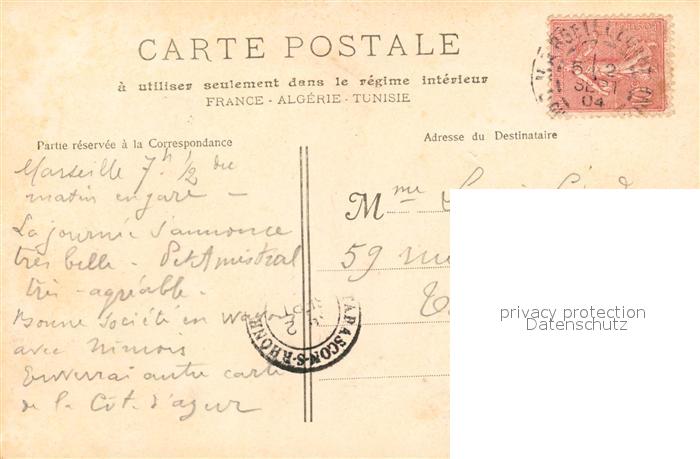 CARTE POSTALE
à utiliser seulement dans le régime intérieur
FRANCE - ALGÉRIE - TUNISIE
Partie réservée à la Correspondance
Adresse du Destinataire
Marseille 7h 1/2 du
matin en gare —
La journée s'annonce
très belle - Petit mistral
très agréable.
Bonne société en wagon
avec Nimois
Enverrai autre carte
de la Côte d'azur
Mme
59 rue
5 12
SEPT
04
TARASCON-S-RHONE
2
SEPT
privacy protection
Datenschutz